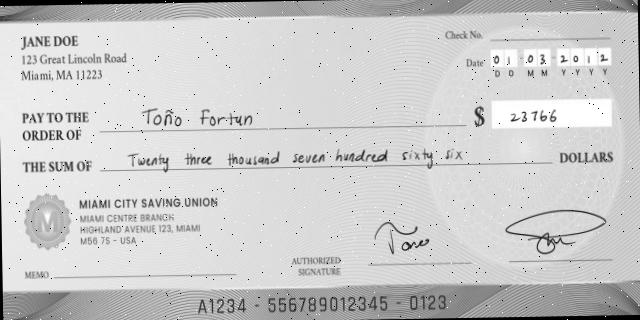 JANE DOE
123 Great Lincoln Road
Miami, MA 11223
Check No.
Date 01 03 2012
D D M M Y Y Y Y
PAY TO THE ORDER OF Toño Fortun
$ 23766
THE SUM OF Twenty three thousand seven hundred sixty six DOLLARS
MIAMI CITY SAVING UNION
MIAMI CENTRE BRANCH
HIGHLAND AVENUE 123, MIAMI
M56 7S - USA
M
AUTHORIZED SIGNATURE
Tono
MEMO
A1234 - 556789012345 - 0123